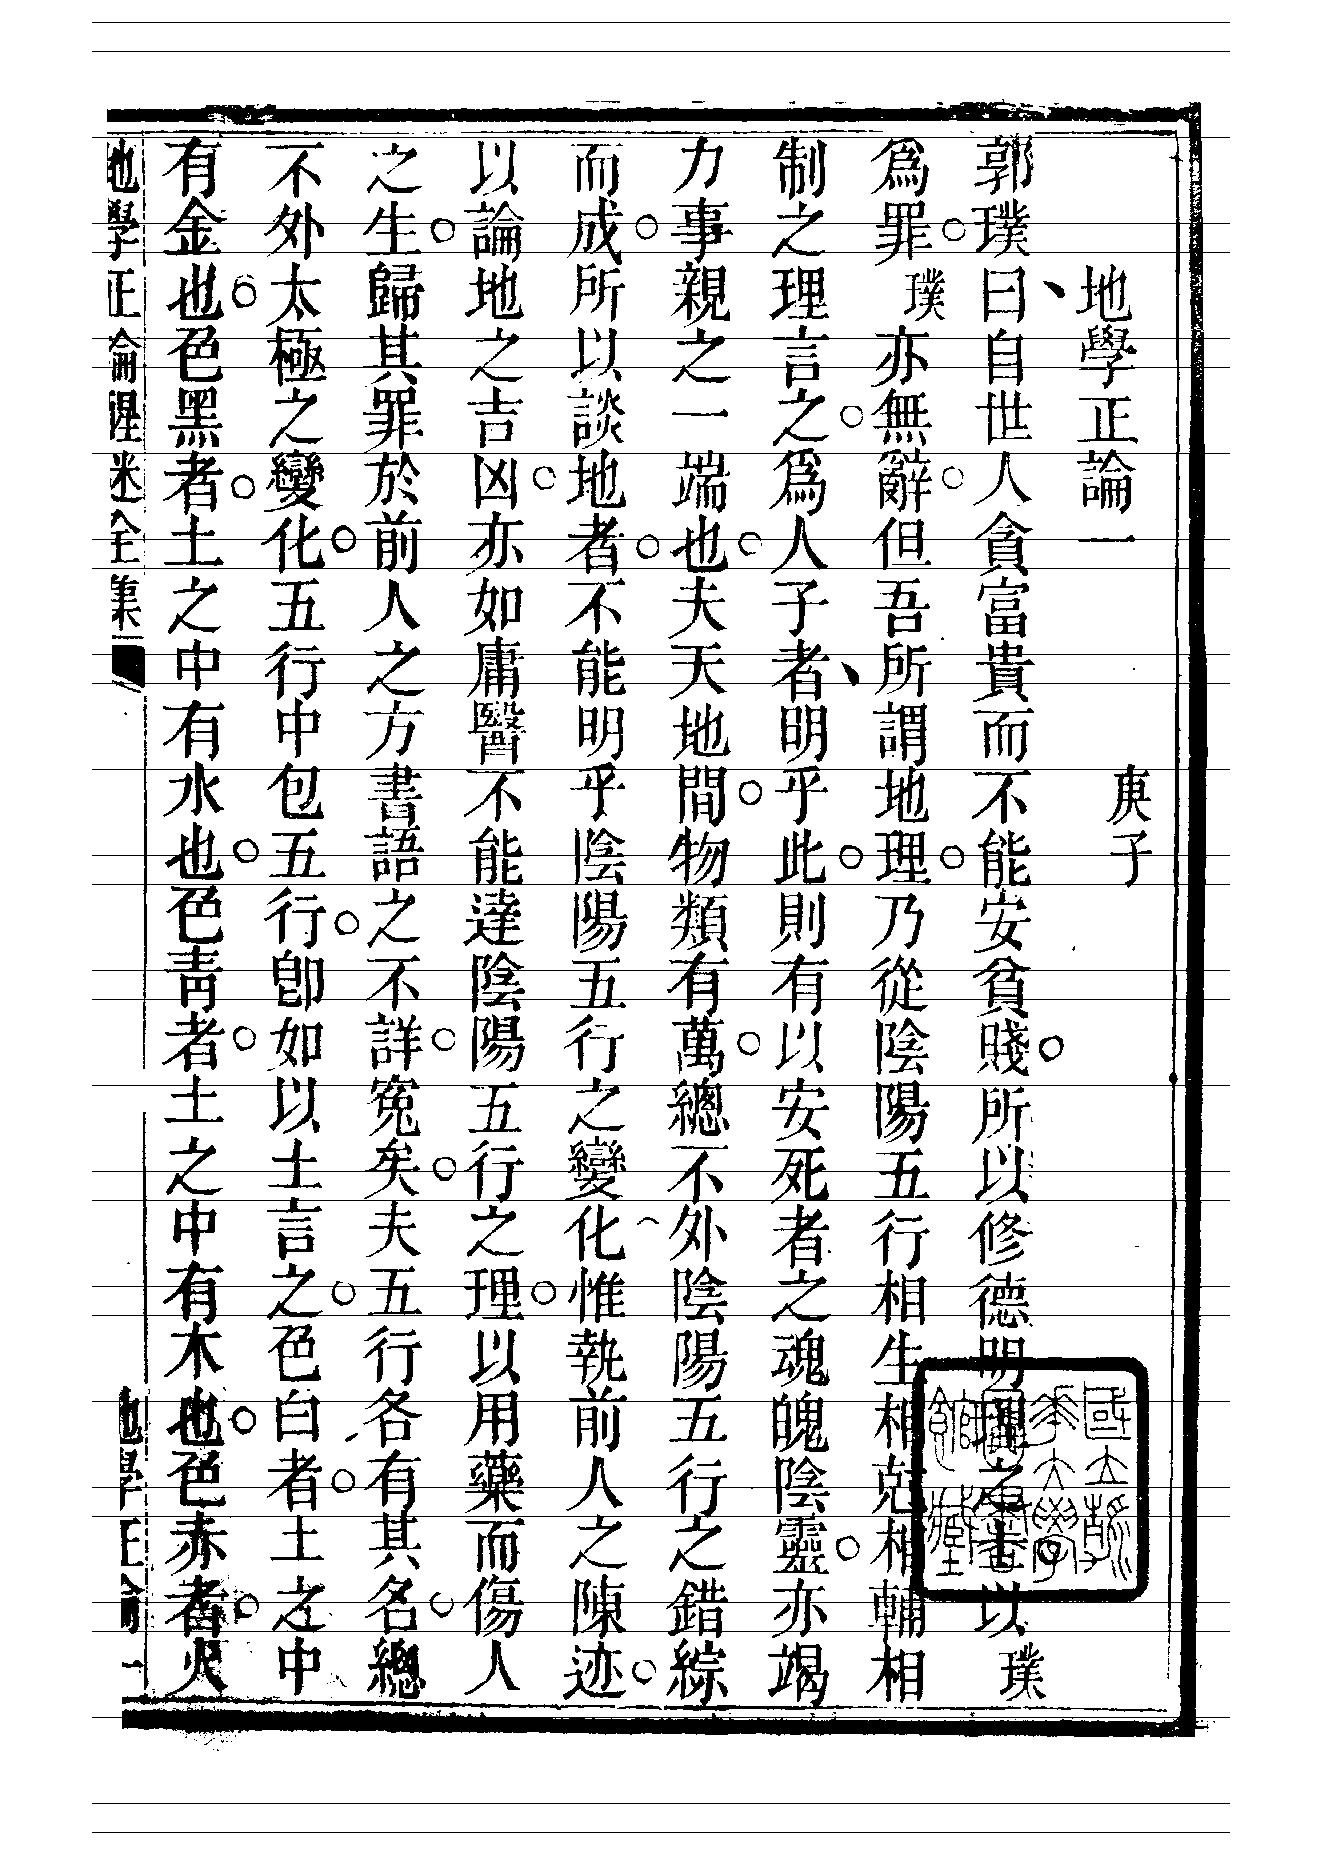 地學正論一　庚子
郭璞曰、自世人貪富貴而不能安貧賤。所以修德明理之士以璞
爲罪。璞亦無辭。但吾所謂地理。乃從陰陽五行相生相尅相輔相
制之理言之。爲人子者、明乎此。則有以安死者之魂魄陰靈。亦竭
力事親之一端也。夫天地間。物類有萬。總不外陰陽五行之錯綜
而成。所以談地者。不能明乎陰陽五行之變化惟執前人之陳迹。
以論地之吉凶。亦如庸醫不能達陰陽五行之理。以用藥而傷人
之生。歸其罪於前人之方書語之不詳。寃矣。夫五行各有其名。總
不外太極之變化。五行中包五行。卽如以土言之。色白者。土之中
有金也。色黑者。土之中有水也。色靑者。土之中有木也。色赤者。火
地學正論醒迷全集　地學正論一
國立清
華大學
圖書
館藏